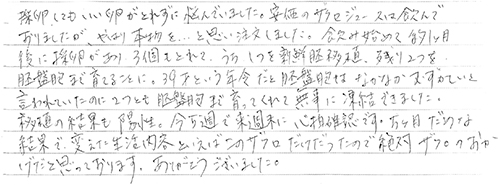 採卵しても いい卵がとれずに悩んでいました。安価のザクロジュースは飲んで
おりましたが、やはり本物を…と思い注文しました。飲み始めて約1ヶ月
後に採卵があり 3個もとれて、うち 1つを新鮮胚移植、残り2つを
胚盤胞まで育てることに。39才という年令だと胚盤胞は なかなかむずかしいと
言われていたのに2つとも胚盤胞まで育ってくれて 無事に凍結できました。
移植の結果も 陽性。今5週で来週末に心拍確認です。1ヶ月だけな
結果で、変えた生活内容といえばこのザクロだけだったので絶対ザクロのおか
げだと思っております。ありがとうございました。